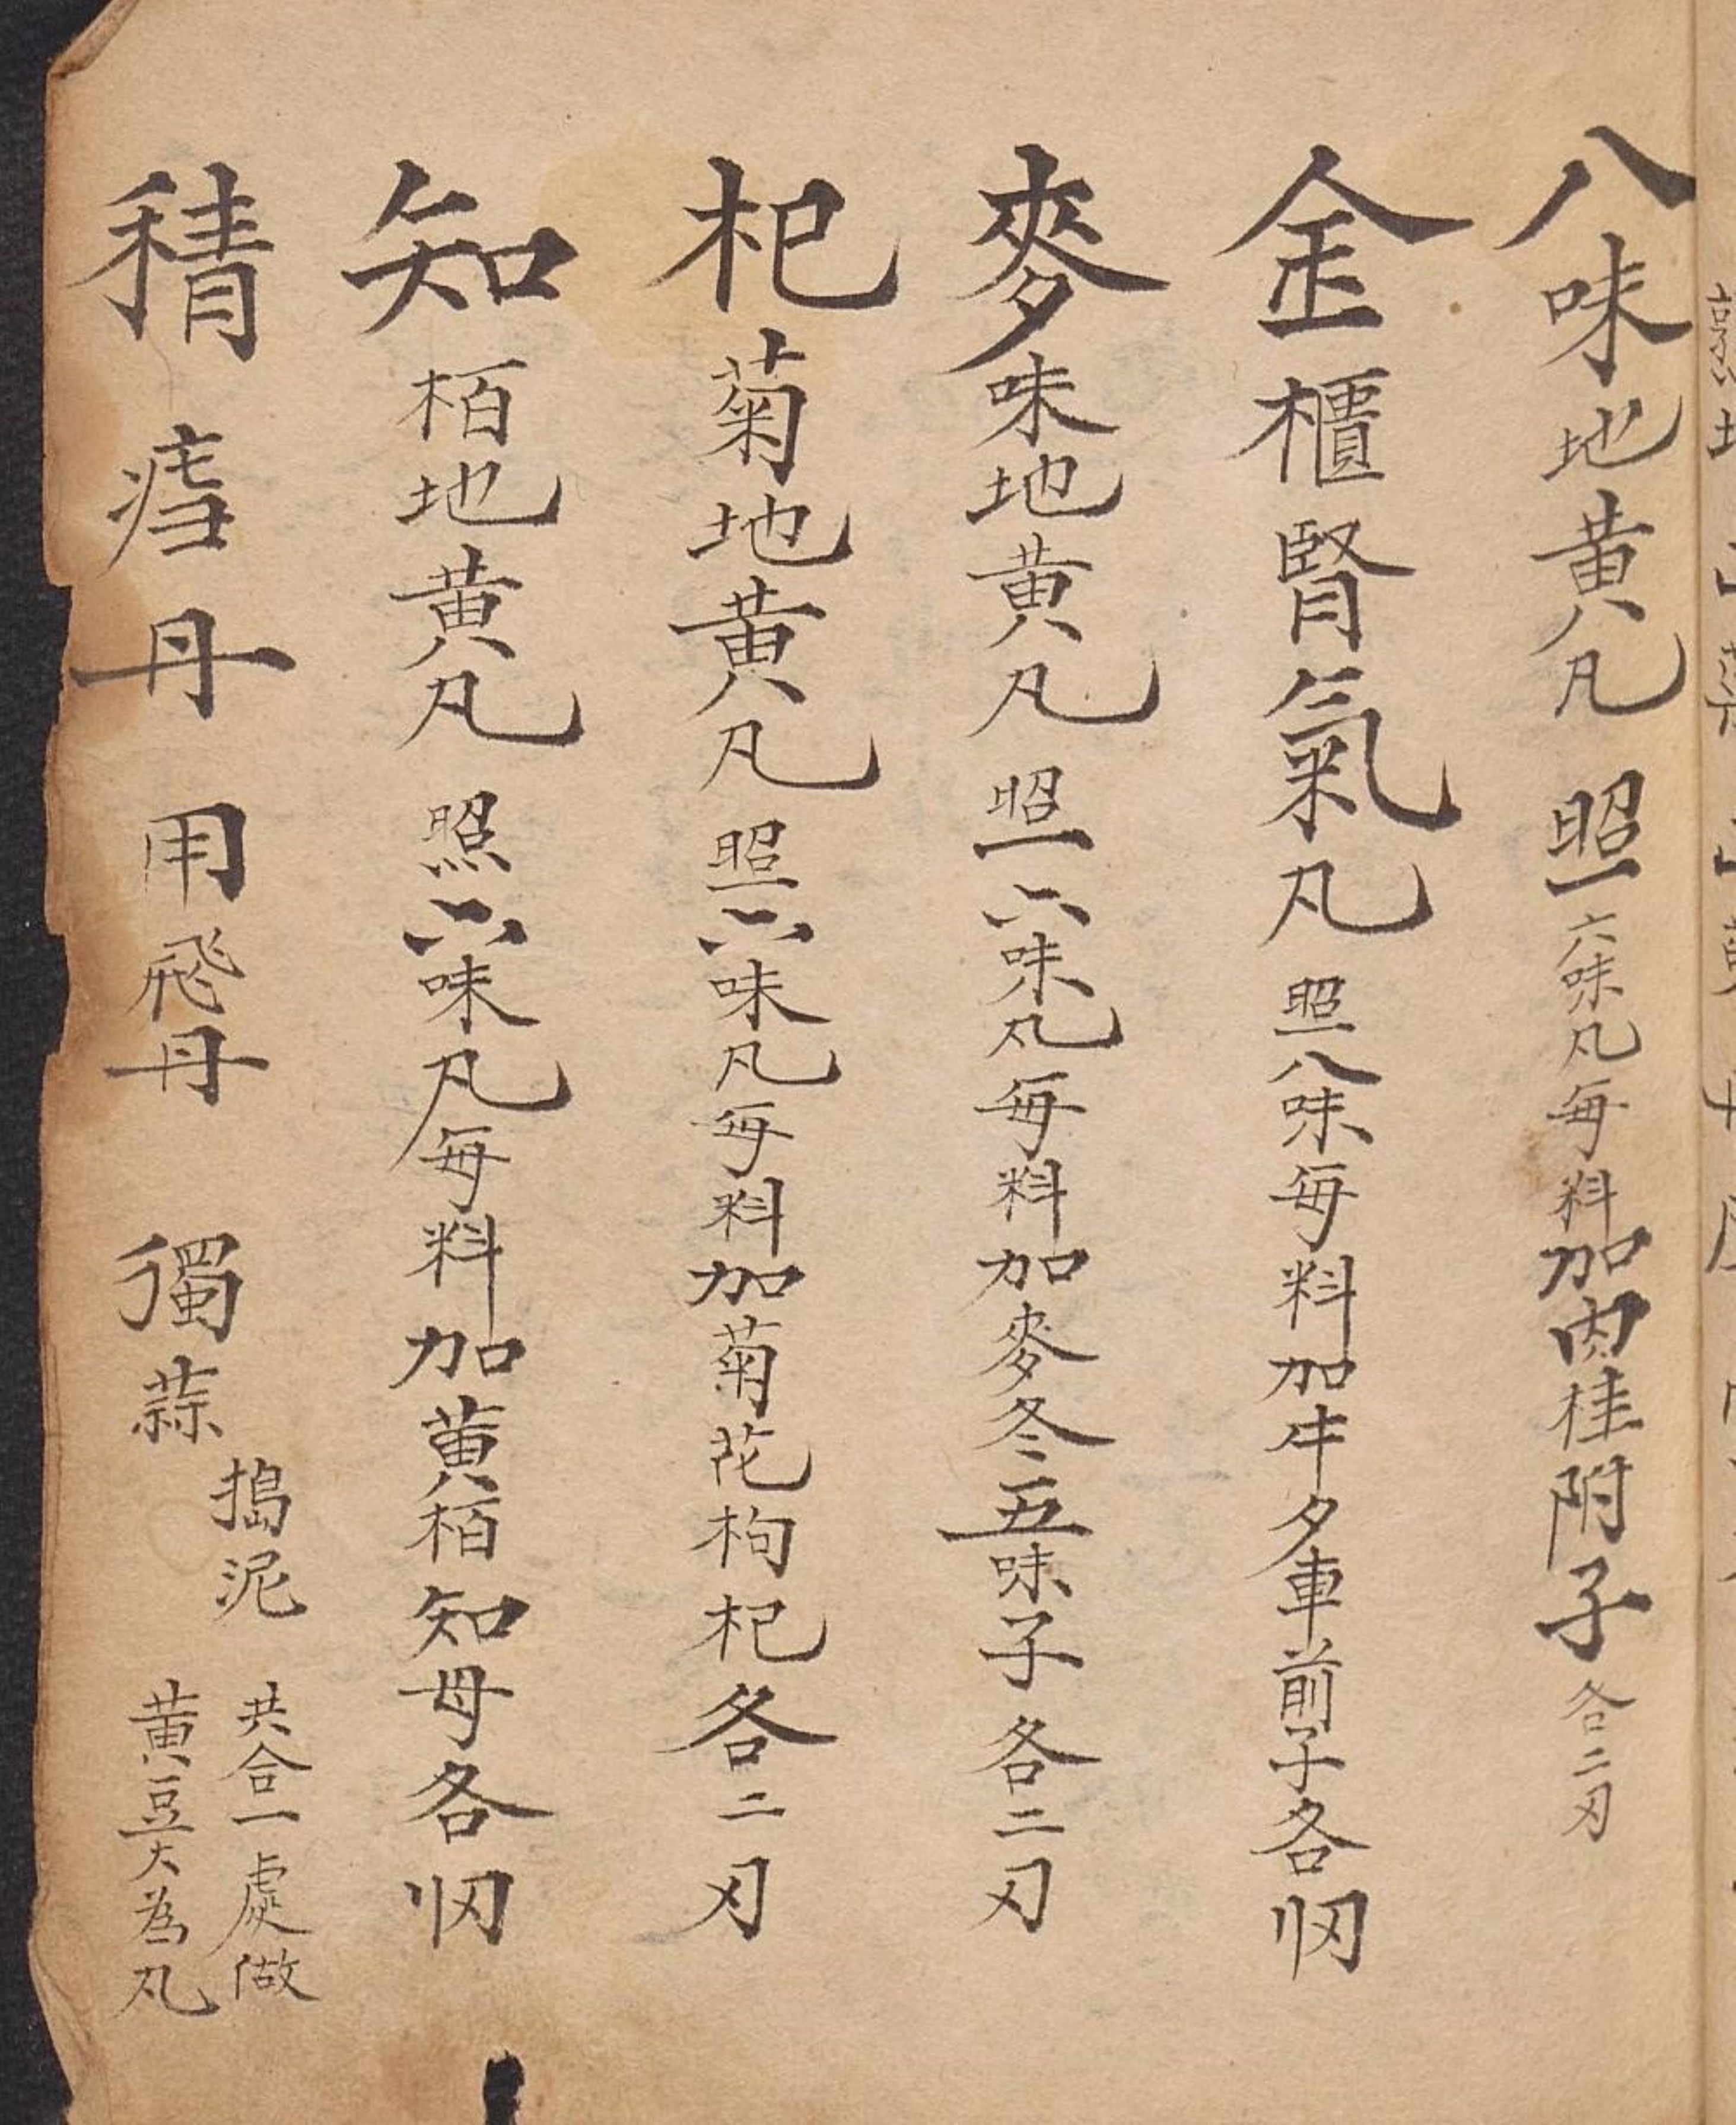 八味地黄丸 照六味丸每料加肉桂附子各二刃
金櫃腎氣丸 照八味每料加牛夕車前子各
麥味地黄丸 照六味丸每料加麥冬五味子各二刃
杞菊地黄丸 照六味丸每料加菊花枸杞各二刃
知栢地黄丸 照六味丸每料加黄栢知母各
丹 用飛丹 獨蒜
搗泥
共合一處做
黄豆大為丸